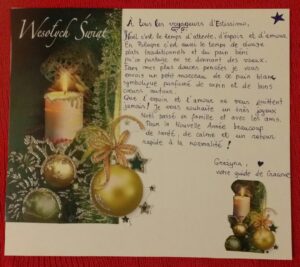 Wesołych Świąt
A tous les voyageurs d'Estissimo,
Noël c'est le temps d'attente, d'espoir et d'amour.
En Pologne c'est aussi le temps de douze
plats traditionnels et du pain béni
qu'on partage en se donnant des vœux.
Dans mes plus douces pensées je vous
envoie un petit morceau de ce pain blanc
symbolique parfumé de sapin et de bons
cœurs autour.
Que l'espoir et l'amour ne vous quittent
jamais! Je vous souhaite un très joyeux
Noël passé en famille et avec les amis.
Pour la Nouvelle Année beaucoup
de santé, de calme et un retour
rapide à la normalité!
Grażyna,
votre guide de Cracovie